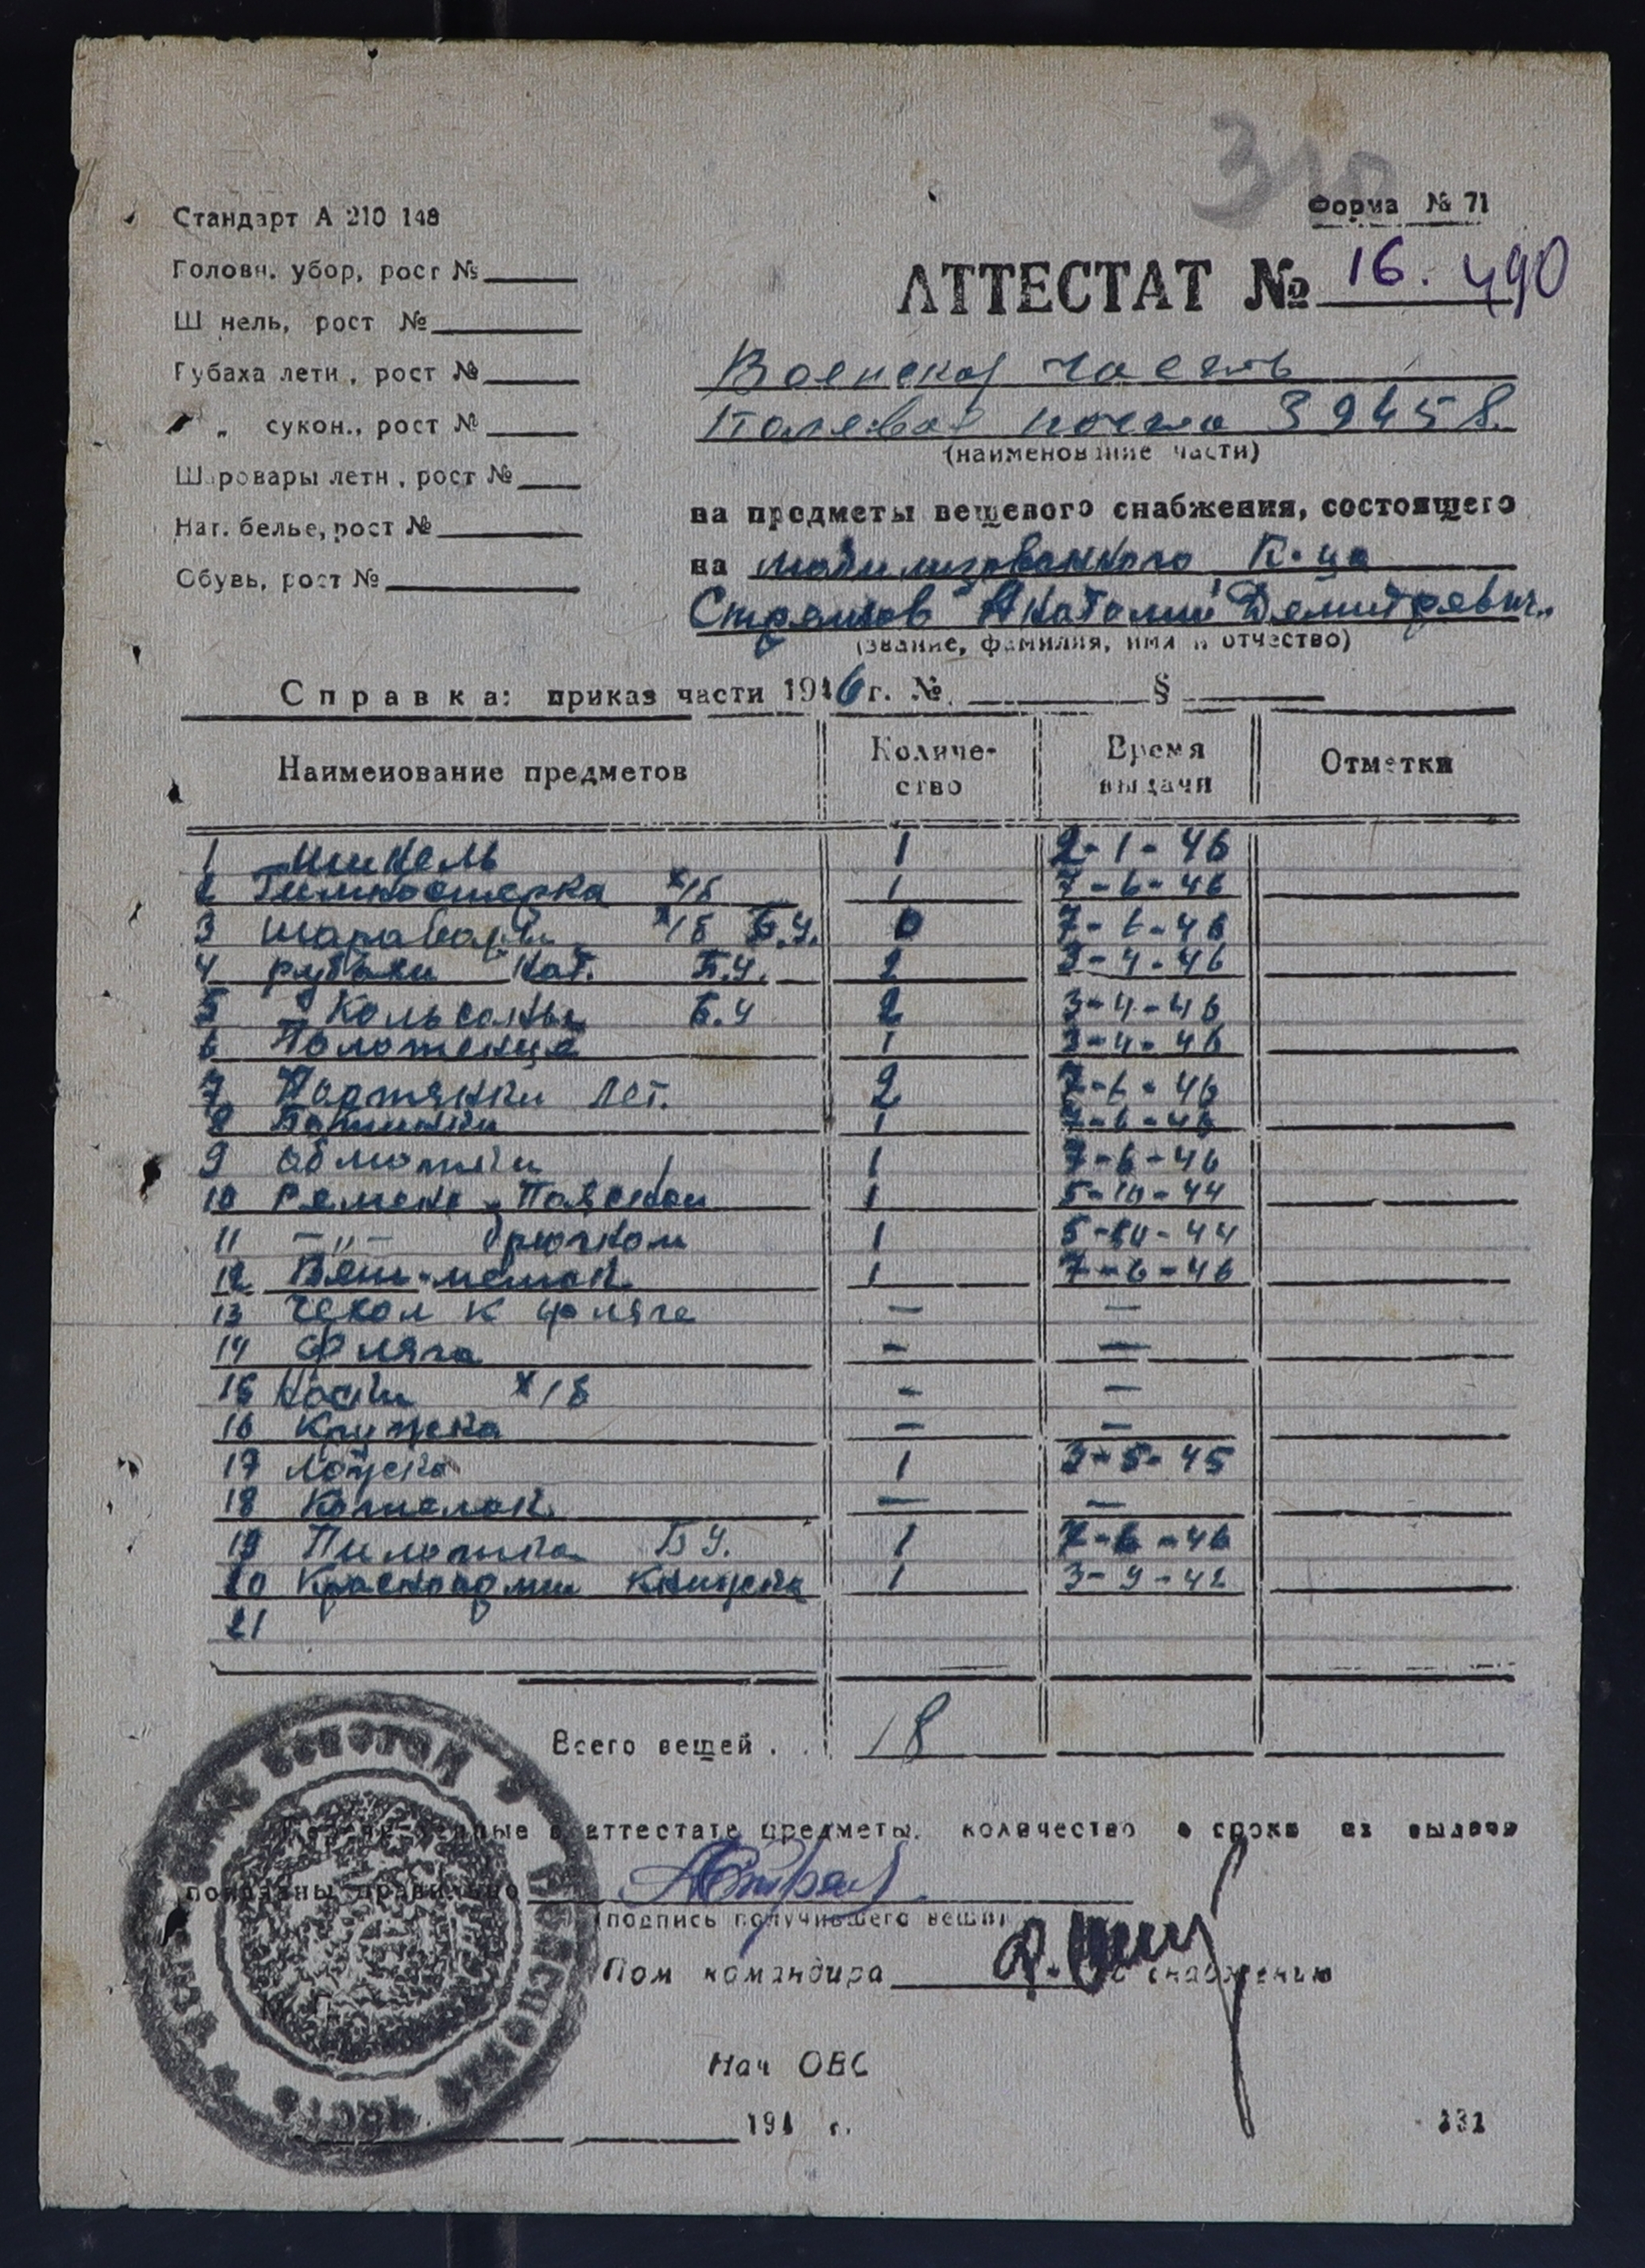 310
Стандарт А 210 148
Форма № 71
Головн. убор, рост №
АТТЕСТАТ № 16.490
Ш нель, рост №
Воинская часть
Губаха летн, рост №
Полевая почта 39458
„ сукон., рост №
(наименование части)
Шаровары летн, рост №
на предметы вещевого снабжения, состоящего
Нат. белье, рост №
на мобилизованного К-ца
Обувь, рост №
Анатолий Демитревич
(звание, фамилия, имя и отчество)
Справка: приказ части 1946 г. № §
Наименование предметов Количество Время выдачи Отметки
1 Шинель 1 2-1-46
2 Гимностерка х/б 1 7-6-46
3 Шаравары х/б Б.У. 0 7-6-46
4 рубахи нат. Б.У. 2 3-4-46
5 Кольсоны Б.У 2 3-4-46
6 Полотенце 1 3-4-46
7 Портянки лет. 2 7-6-46
8 Ботинки 1 7-6-46
9 Обмотки 1 7-6-46
10 Ремень Поясной 1 5-10-44
11 -„- брючной 1 5-10-44
12 Вещ-мешок 1 7-6-46
13 Чехол к фляге — —
14 Фляга - —
15 х/б - —
16 Кружка - —
17 Ложка 1 3-5-45
18 Котелок — —
19 Пилотка БУ. 1 7-6-46
20 Красноарми Книжка 1 3-9-42
21
Всего вещей . . 18
аттестате предметы, количество и сроки их выдачи
показаны правильно
(подпись получившего вещи)
Пом командира по снабжению
Нач ОВС
194 г.
331